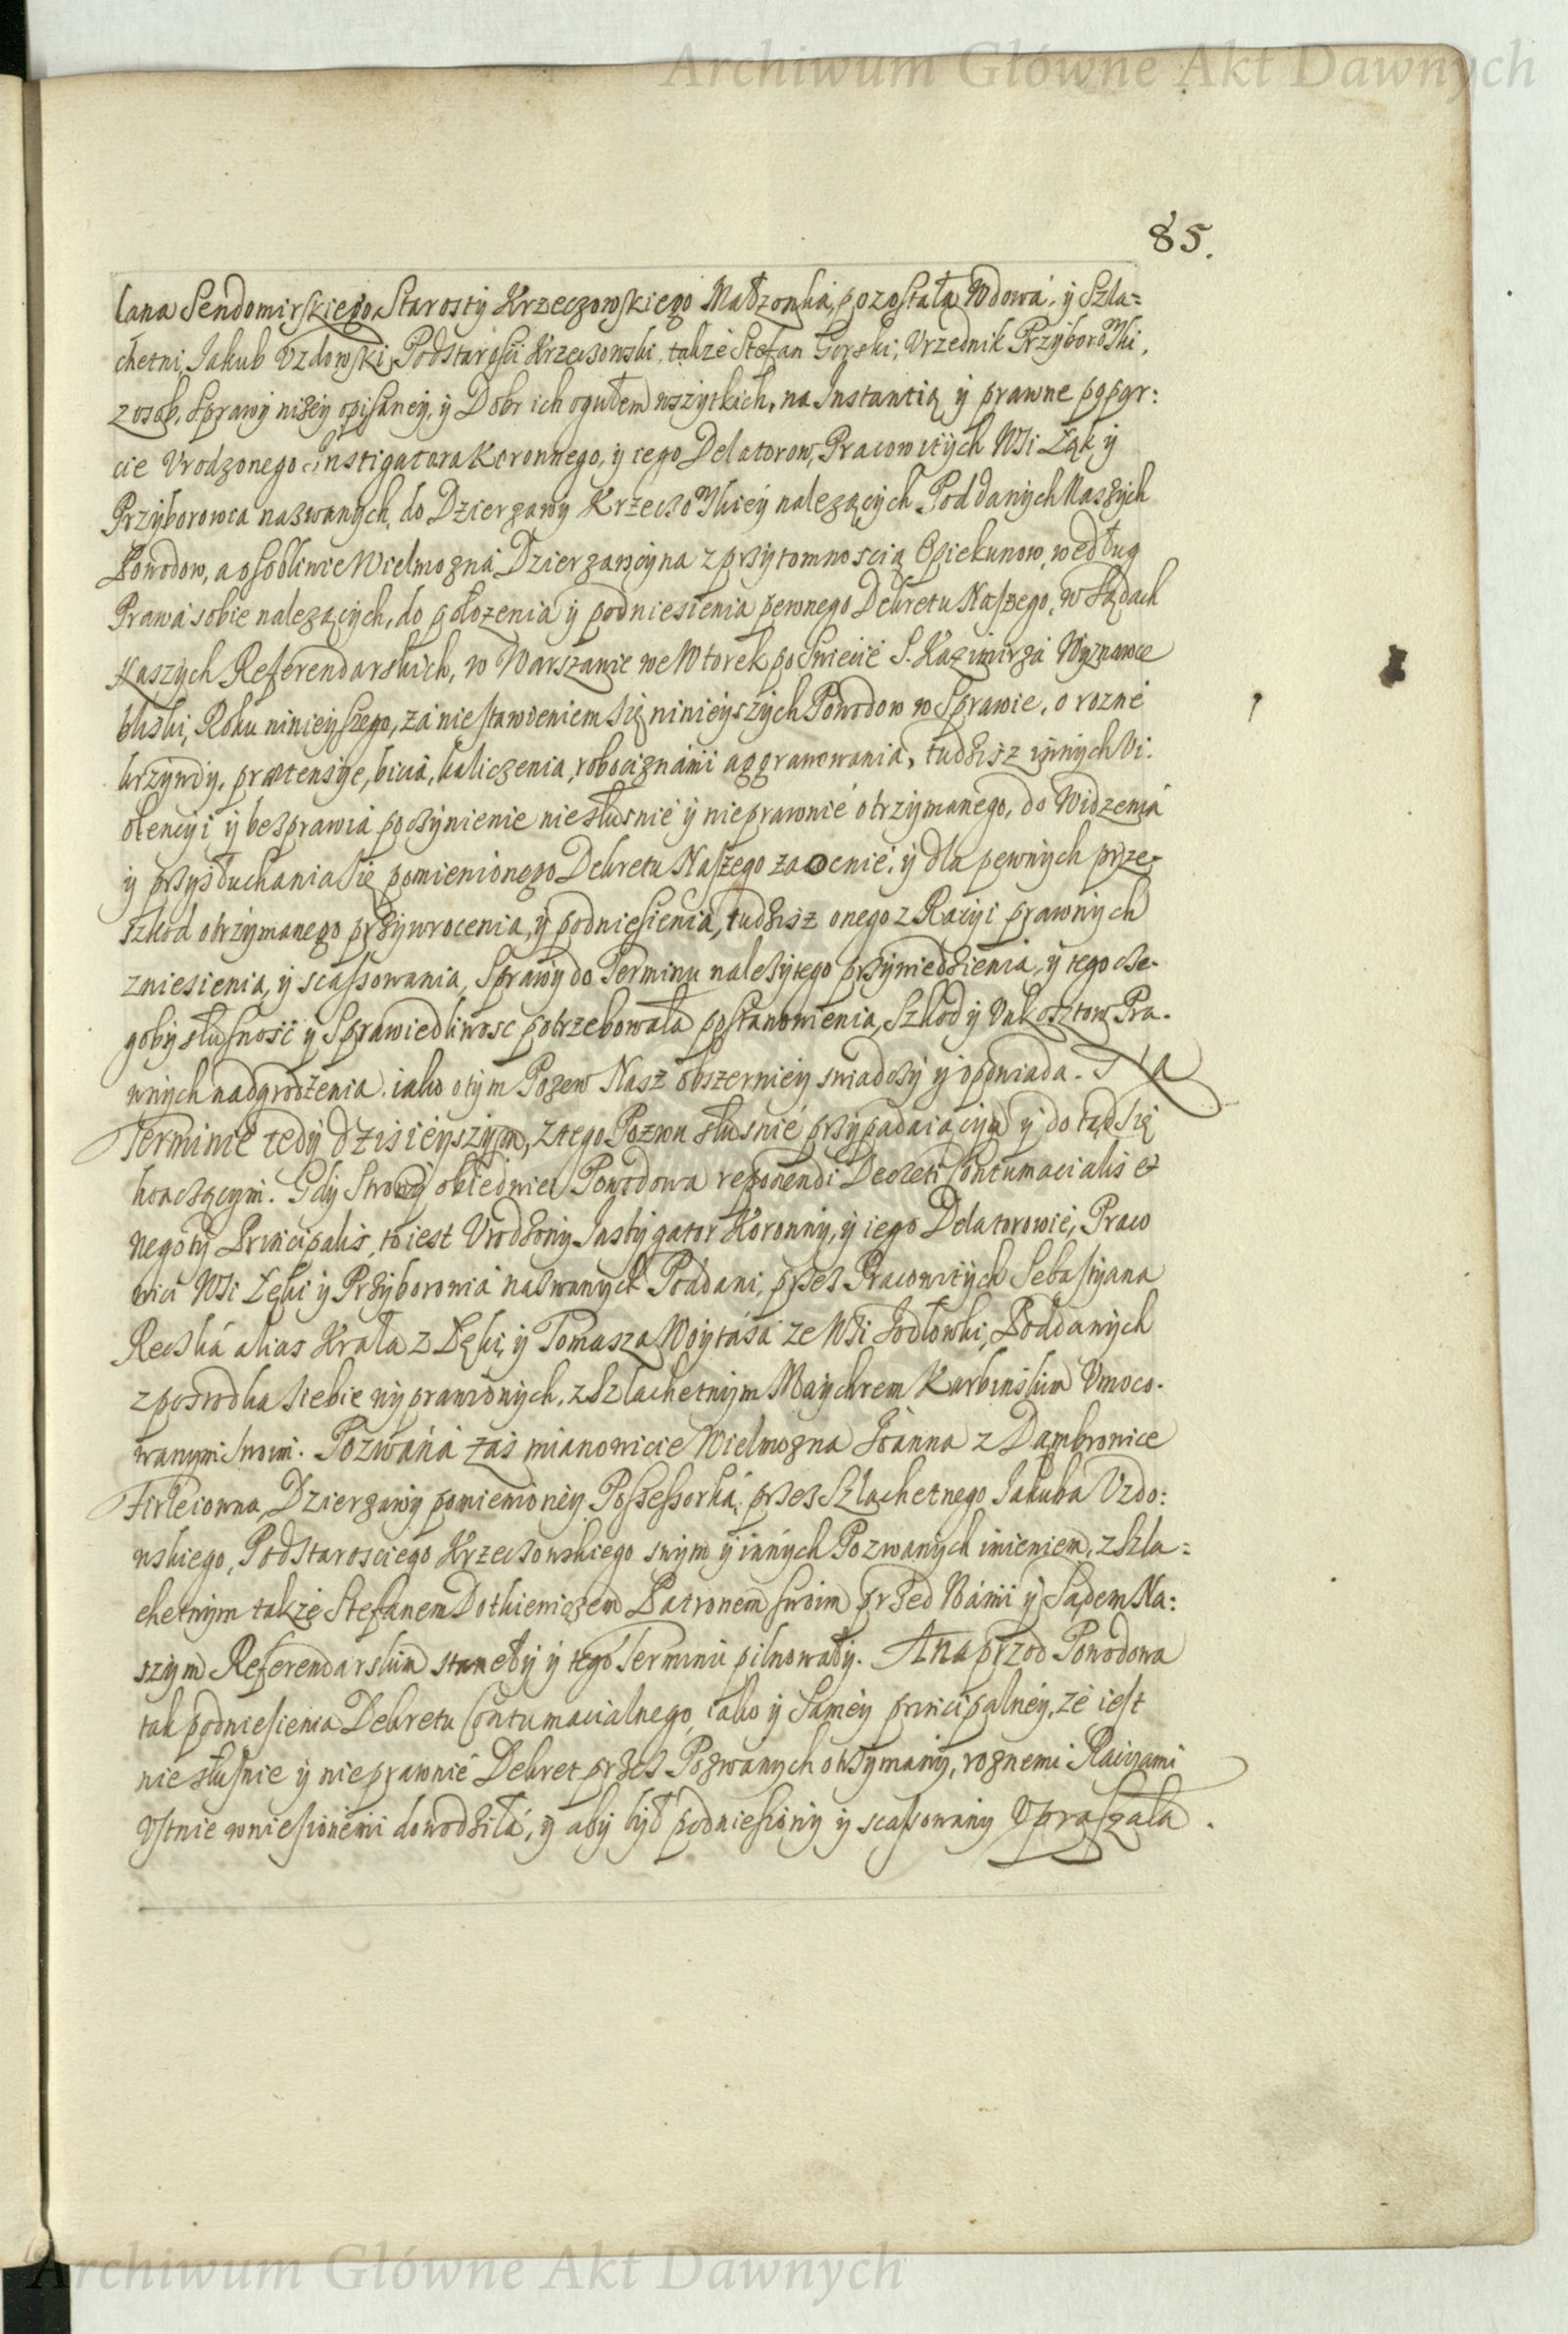 Archiwum Główne Akt Dawnych
85.
lana Sendomirskiego, Starosty Krzeczowskiego Małzonka, pozostała Wdowa, y Szla=
chetni Jakub Vzdowski, Podstarosci Krzeczowski, także Stefan Gorski, Vrzednik Przyborowski,
z osob, Sprawy niżey opisaney, y Dobr ich ogułem wszytkich, na Instantią y prawne popar:
cie Vrodzonego Instigatora Koronnego, y iego Delatorow, Pracowitych Wsi Łąk, y
Przyborowia nazwanych, do Dzierzawy Krzeczowskiey nalezących Poddanych Naszych
Powodow, a osobliwie Wielmozna Dzierzawczyna z przytomnoscią Opiekunow, według
Prawa sobie nalezących, do położenia y podniesienia pewnego Dekretu Naszego, w Sądach
Naszych Referendarskich, w Warszawie we Wtorek po Swiecie S. Kazimirza Wyznawce
bliski, Roku ninieyszego, za nie stawieniem się ninieyszych Powodow w Sprawie, o rozne
krzywdy, prætensye, bicia, kaliczenia, robociznami aggrawowania, tudziesz innych Vi:
olencyi y bezprawia poczynienie niesłusnie y nieprawnie otrzymanego, do Widzenia
y przysłuchania się pomienionego Dekretu Naszego zaocznie, y dla pewnych prze=
szkod otrzymanego przywrocenia, y podniesienia, tudzisz onego z Racyi prawnych
zniesienia, y scassowania, Sprawy do Terminu należytego przywiedzienia, y tego cze=
goby słusność y Sprawiedliwosc potrzebowała postanowienia, Szkod y Vukosztow Pra=
wnych nadgrodzenia, iako o tym Pozew Nasz obszerniey swiadczy y opowiada. Na
Terminie tedy dzisieyszym, z tego Pozwu słusnie przypadaiącym y do tąd się
konczącym. Gdy Strony obiedwie Powodowa reponendi Decreti Contumacialis et
negoty Principalis, to iest Vrodzony Instygator Koronny, y iego Delatorowie, Praco
wici Wsi Łęki y Przyborowia nazwanych Poddani, przez Pracowitych Sebastyana
Reczka alias Krala z Łęki, y Tomasza Woytasa ze Wsi Jodłowki, Poddanych
z posrodka siebie wyprawionych, z Szlachetnym Maychrem Karbinskim Vmoco=
wanym swoim. Pozwana zas mianowicie Wielmozna Joanna z Dambrowice
Firleiowna, Dzierzawy pomienioney Possessorka, przez Szlachetnego Jakuba Vzdo:
wskiego, Podstarosciego Krzeczowskiego swym y innych Pozwanych imieniem, z Szla=
chetnym także Stefanem Dothieniczem Patronem swoim przed Nami y Sądem Na:
szym Referendarskim stanęły y tego Terminu pilnowały. A naprzod Powodowa
tak podniesienia Dekretu Contumacialnego, iako y Samey principalney, ze iest
nie słusnie y nie prawnie Dekret przez Pozwanych otrzymany, roznemi Racyami
Vstnie wniesionemi dowodziła, y aby był podniesiony y scassowany Vpraszała.
Archiwum Główne Akt Dawnych